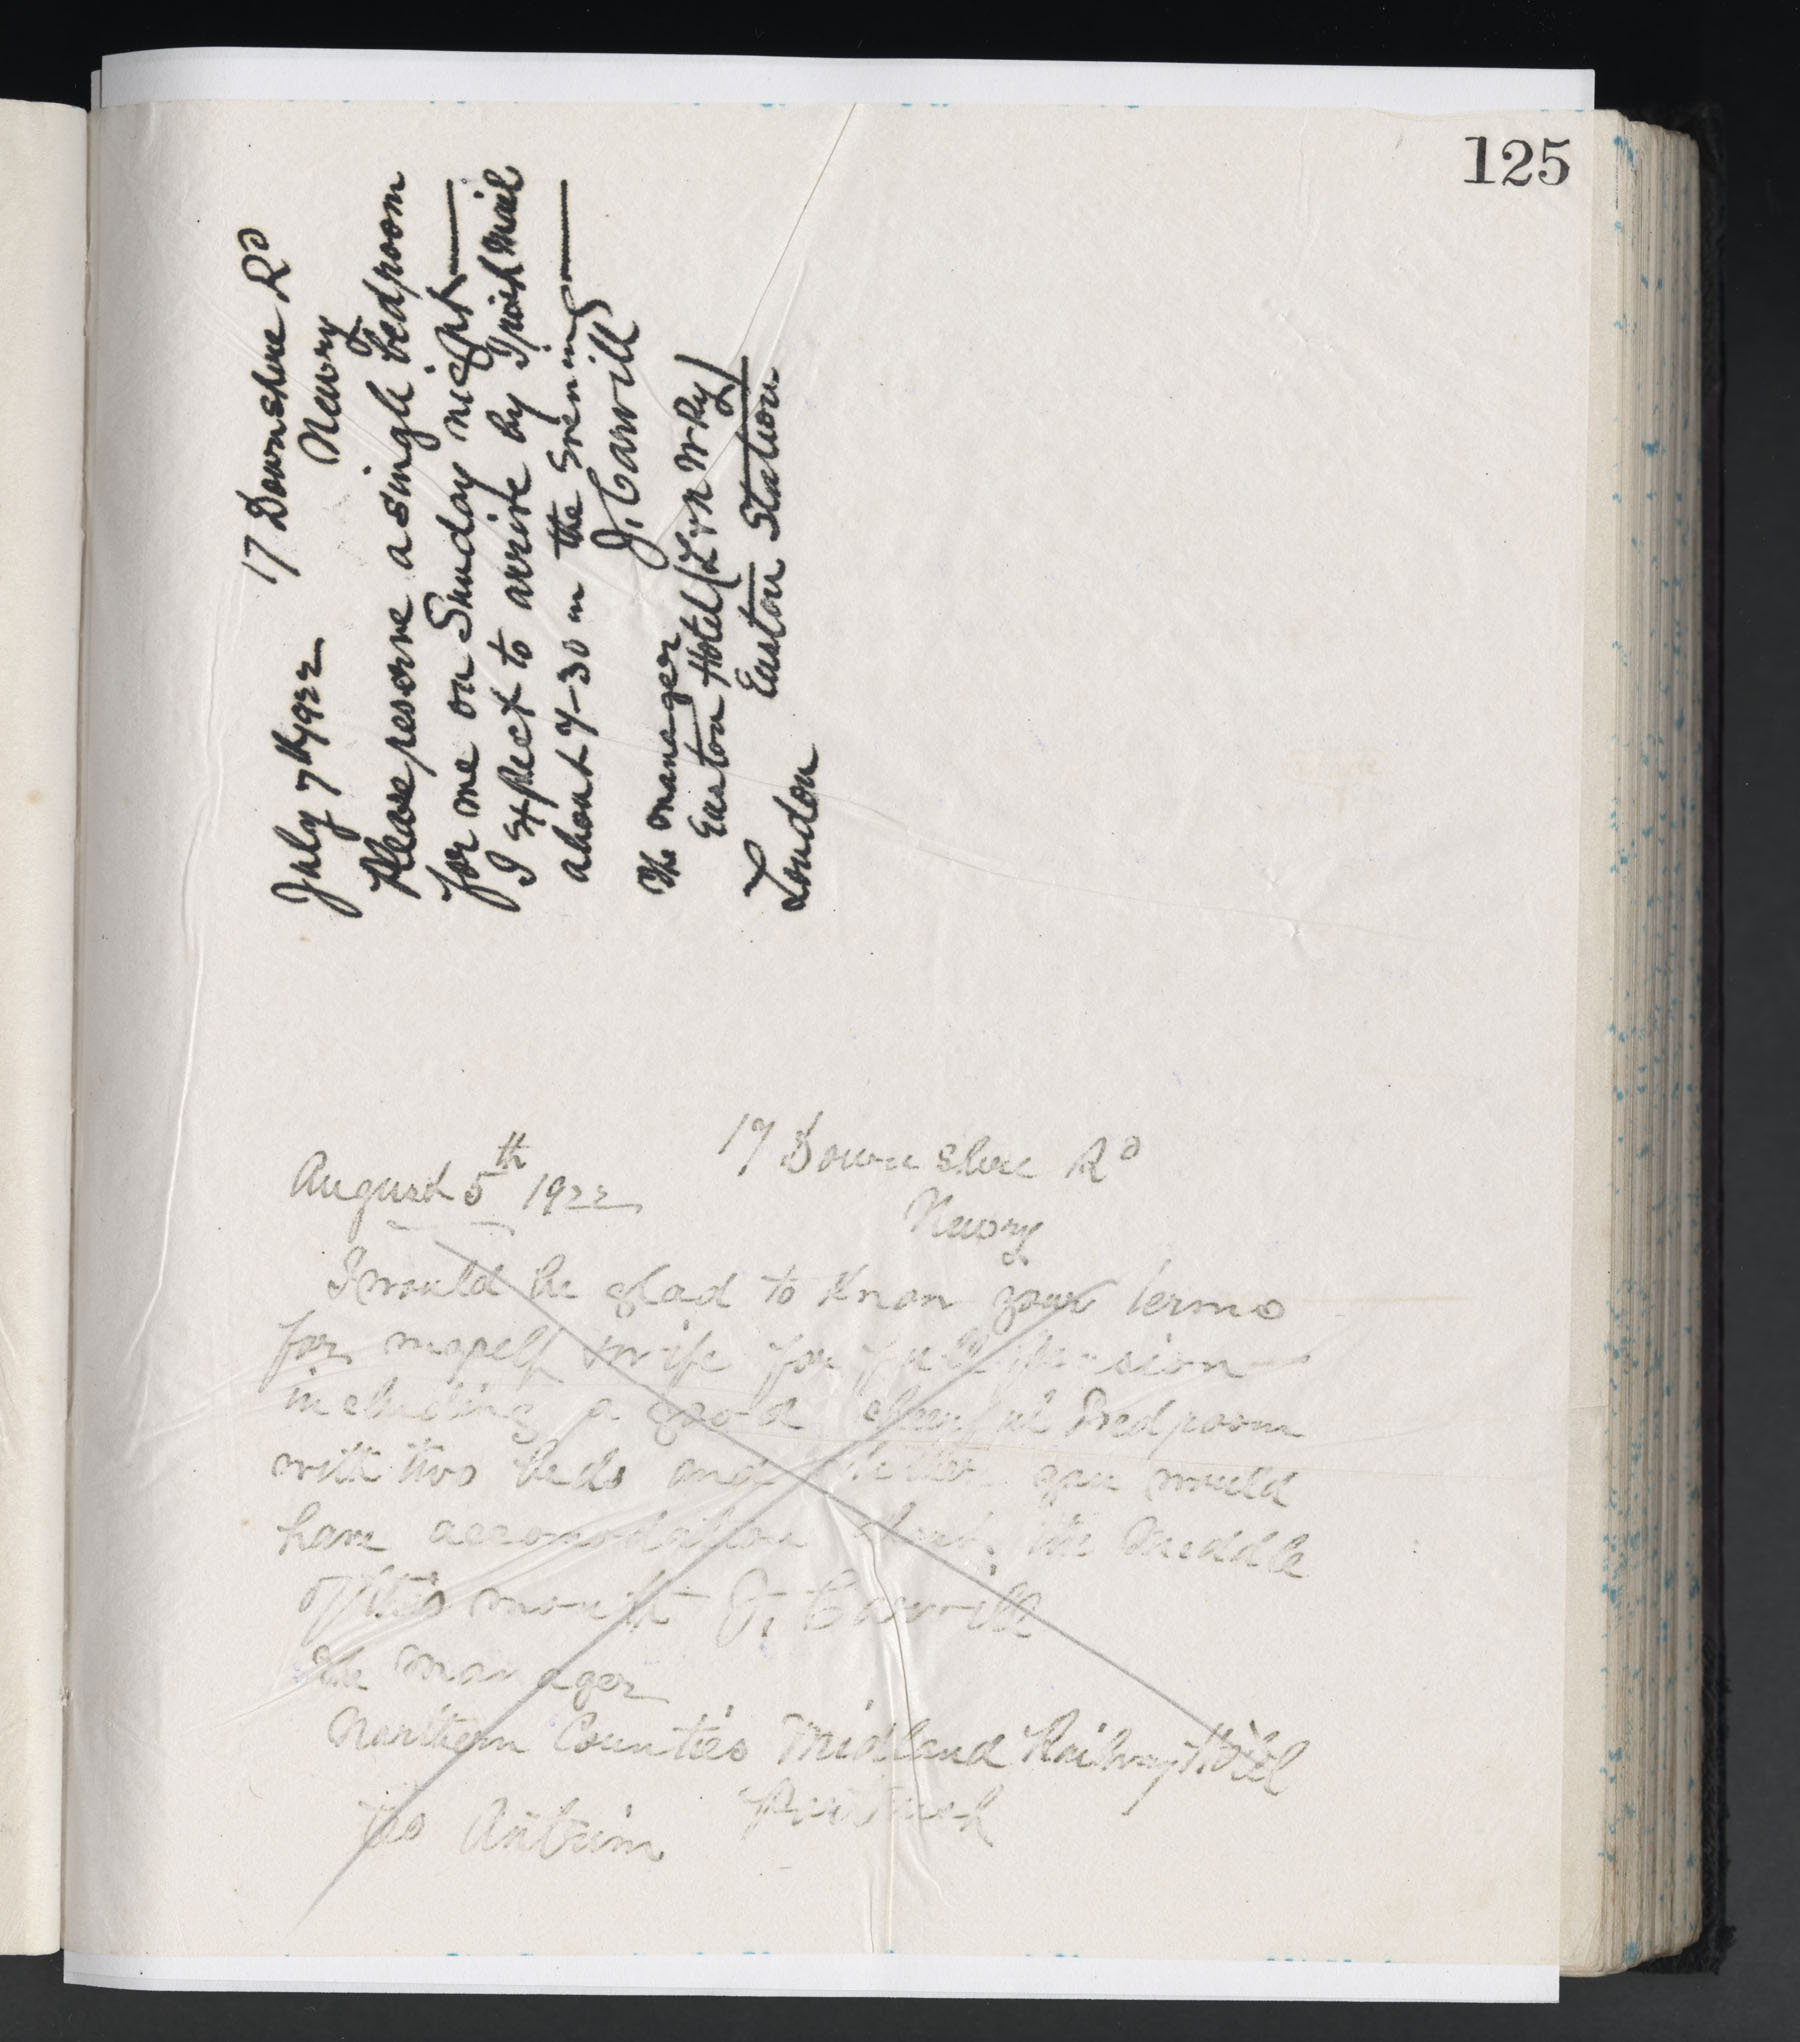 125
17 Downshire Rd
Newry
July 7th 1922
Please reserve a single bedroom
for me on Sunday night
I expect to arrive by Irish Mail
about 7-30 in the Evening
J. Carvill
The Manager
Euston Hotel (L & N W Ry)
Euston Station
London
17 Downshire Rd
August 5th 1922
Newry
I would be glad to know your terms
for myself & wife for full pension
including a good cheerful Bedroom
with two beds and you would
have accomodation about the Middle
of this month J. Carvill
The Manager
Northern Counties Midland Railway Hotel
Portrush
Co Antrim